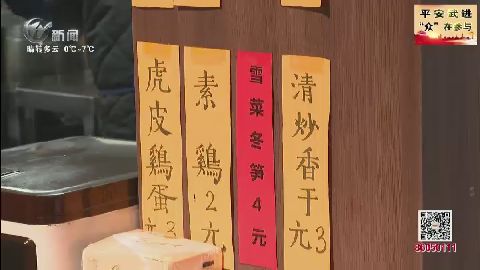 新闻
晴转多云 0℃-7℃
平安武进
“众”在参与
虎皮鷄蛋3元
素鷄2元
雪菜冬笋4元
清炒香干3元
86050111